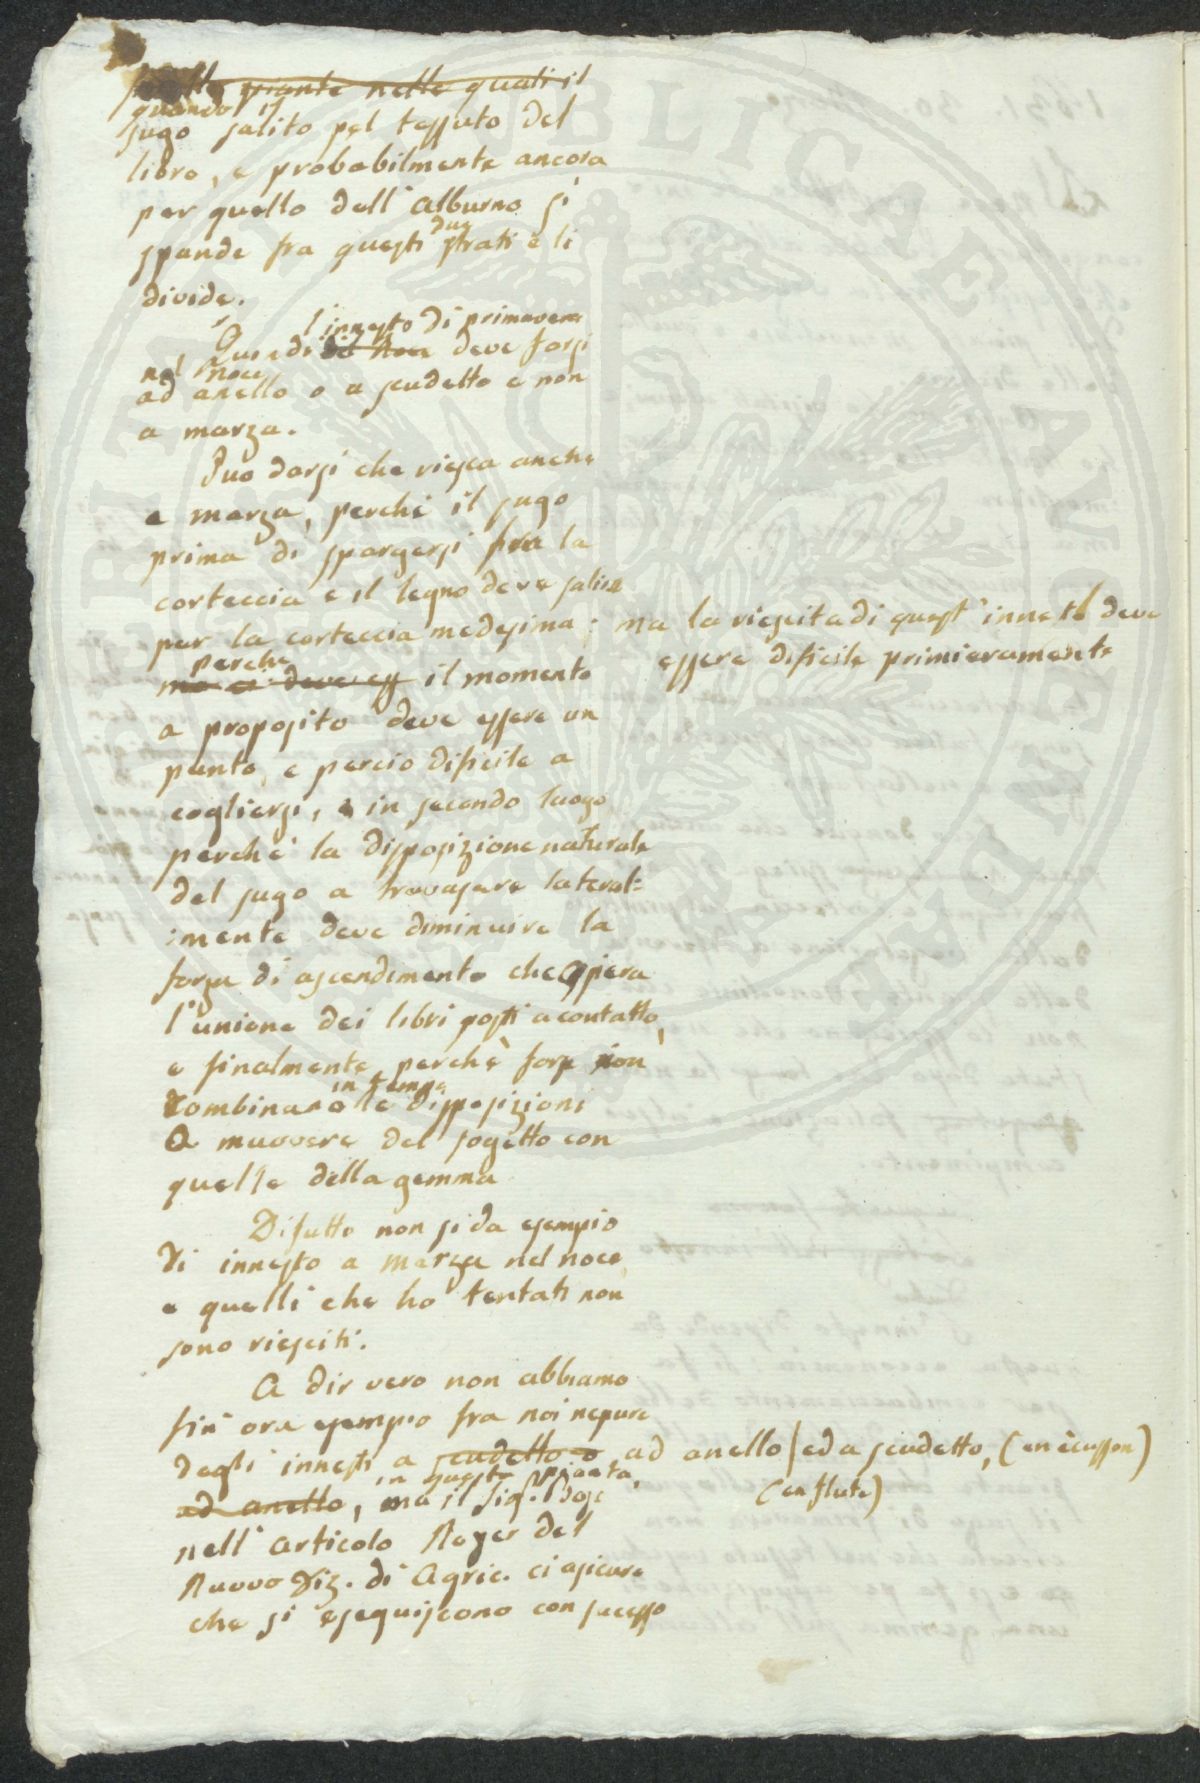 piante nelle quali il
quando il
sugo salito pel tessuto del
libro, e probabilmente ancora
per quello dell'alburno si
due
spande fra questi strati e li
divide.
l'innesto di primavera
Quindi il Noce deve farsi
nel Noce
ad anello o a scudetto e non
a marza.
Può darsi che riesca anche
a marza, perchè il sugo
prima di spargersi fra la
corteccia e il legno deve salire
per la corteccia medesima; ma la riescita di quest'innesto deve
essere dificile primieramente
perche
ma ci deve ess il momento
a proposito deve essere un
punto, e perciò dificile a
cogliersi, e in secondo luogo
perchè la disposizione naturale
del sugo a travasare lateral=
:mente deve diminuire la
forza di ascendimento che opera
l'unione dei libri posti a contatto,
e finalmente perchè forse non
in tempo
combinano le disposizioni
a muovere del sogetto con
quelle della gemma
Difatto non si da esempio
di innesto a marza nel noce,
e quelli che ho tentati non
sono riesciti.
A dir vero non abbiamo
fin ora esempio fra noi nepure
degli innesti a scudetto o ad anello ed a scudetto, (en ècusson)
(en flute)
in questa pianta,
ad anello, ma il Sig. Bosc
nell'articolo Noyer del
Nuovo Diz. di Agric. ci asicura
che si eseguiscono con sucesso